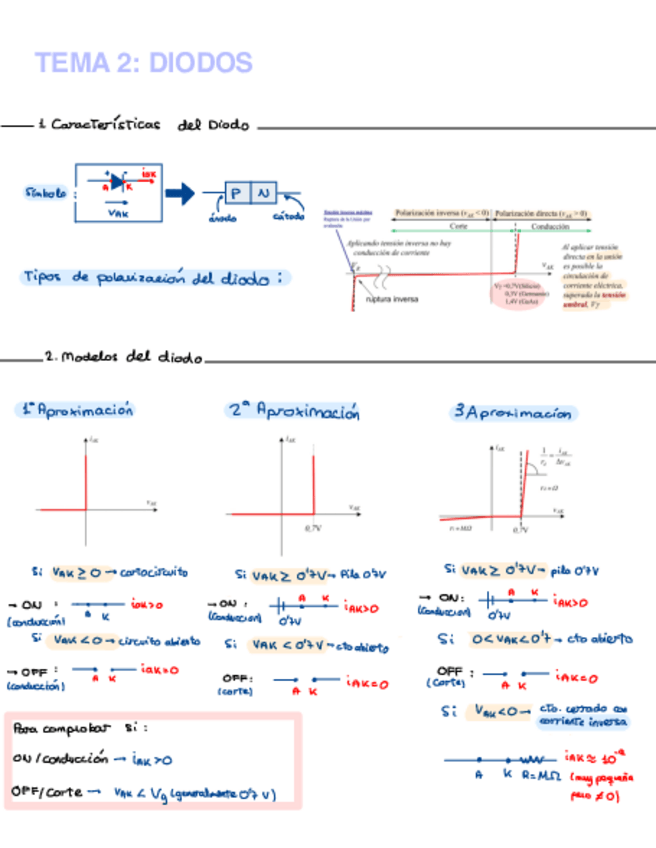 TEMA 2: DIODOS
1. Características del Diodo
Símbolo :
+ -
A K iAK
VAK
P N
ánodo cátodo
Tensión inversa máxima
Ruptura de la Unión por
avalancha
Polarización inversa (vAK < 0) Polarización directa (vAK > 0)
Corte Conducción
Aplicando tensión inversa no hay
conducción de corriente
vAK
ruptura inversa
Vγ =0,7V(Silicio)
0,3V (Germanio)
1,4V (GaAs)
Al aplicar tensión
directa en la unión
es posible la
circulación de
corriente eléctrica,
superada la tensión
umbral, Vγ
Tipos de polarización del diodo :
2. Modelos del diodo
1ª Aproximación
iAK
vAK
Si VAK ≥ 0 → cortocircuito
→ ON : iak>0
(conducción) A K
Si VAK < 0 → circuito abierto
→ OFF : iak=0
(conducción) A K
2ª Aproximación
iAK
vAK
0,7V
Si VAK ≥ 0'7V → Pila 0'7V
→ ON : A K iAK>0
(Conducción) 0'7V
Si VAK < 0'7V → cto abierto
OFF: iAK=0
(corte) A K
3 Aproximación
iAK
vAK
0,7V
Si VAK ≥ 0'7V → pila 0'7V
→ ON: A K iAK>0
(Conducción) 0'7V
Si 0<VAK<0'7 → cto abierto
OFF : iAK=0
(Corte) A K
Si VAK<0 → cto. cerrado con
corriente inversa
A K R=MΩ
(muy pequeña
pero ≠ 0)
Para comprobar si :
ON/conducción → iAK>0
OFF/Corte → VAK < Vg (generalmente 0'7 V)